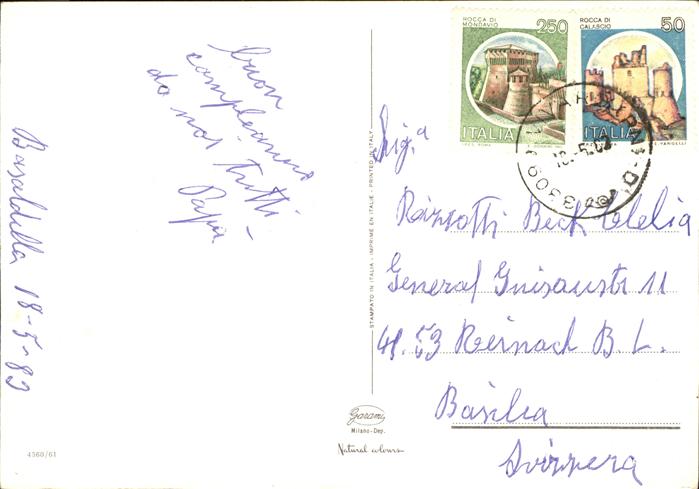 buon
compleanno
da noi tutti
Papà
Basaldella 18-5-83
ROCCA DI
MONDAVIO
250
ITALIA
ROCCA DI
CALASCIO
50
ITALIA
Sig.a
Rizzotti Beck Clelia
General Guisanstr 11
41.53 Reinach B.L.
Basilea
Svizzera
STAMPATO IN ITALIA - IMPRIME EN ITALIE - PRINTED IN ITALY
Garami
Milano-Dep.
Natural colours
4560/61